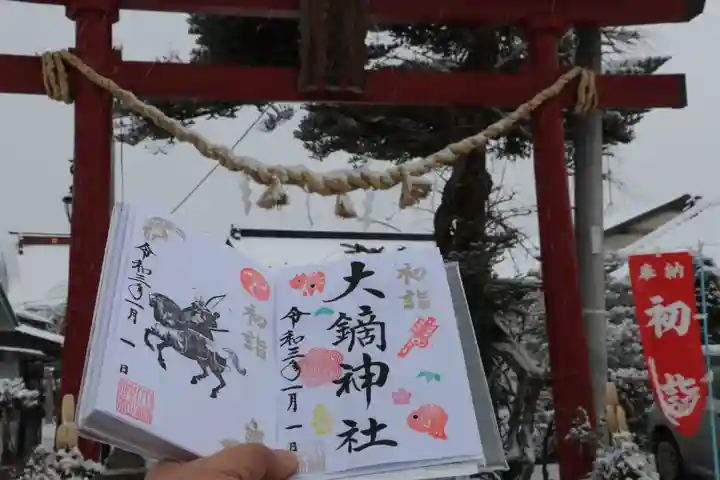 初詣
大鏑神社
令和三年一月一日
初詣
令和三年一月一日
奉納
初詣